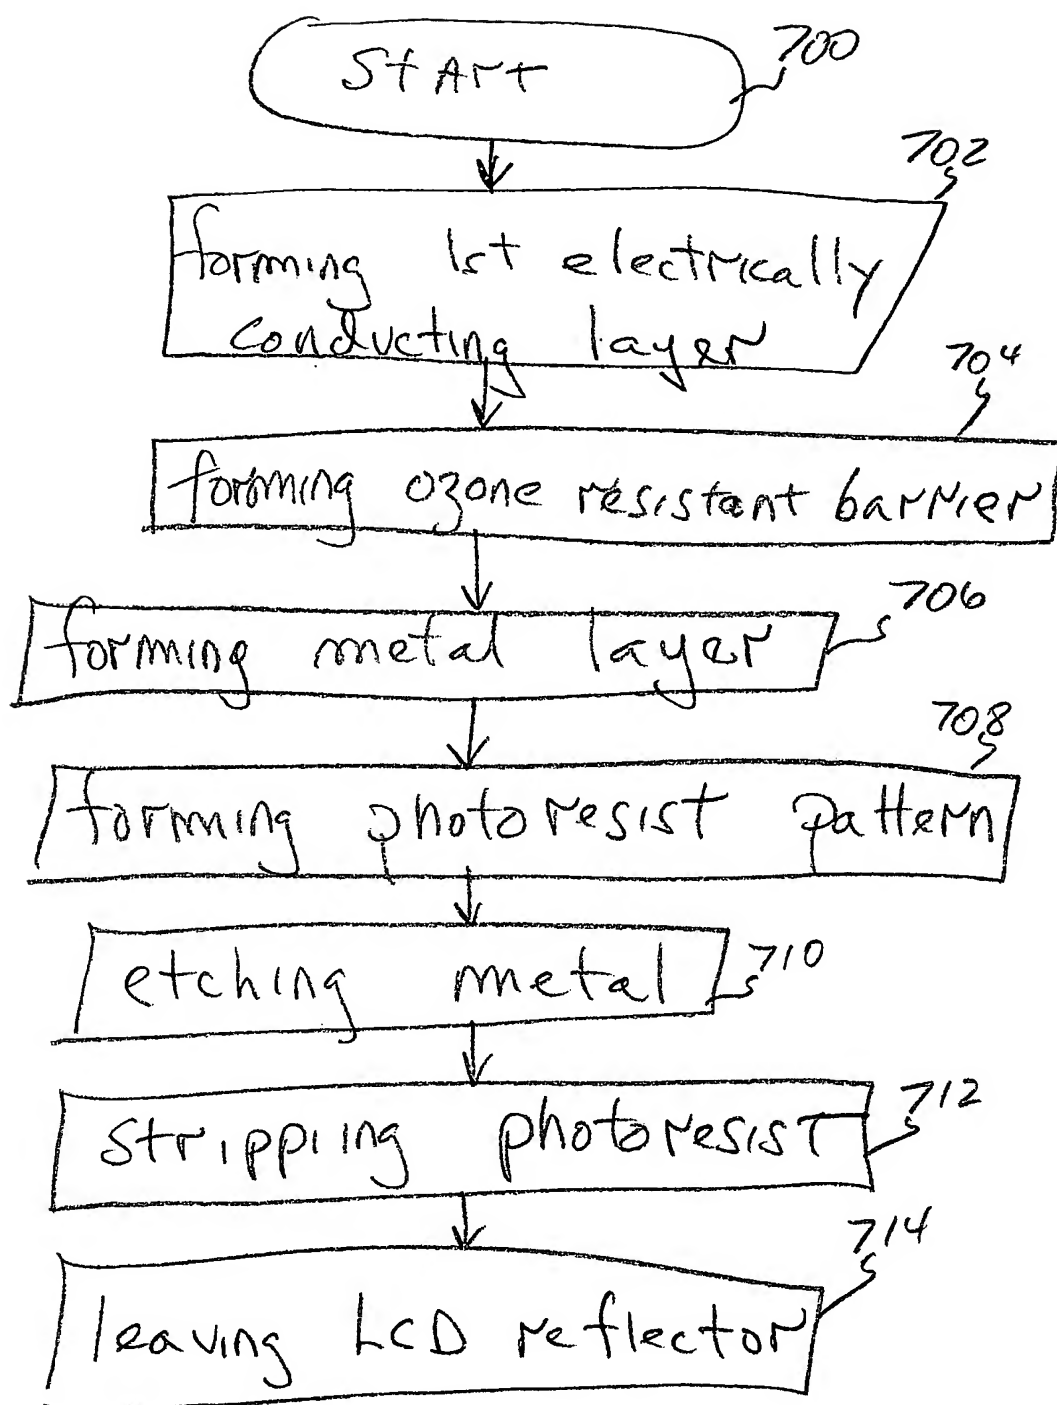 Start
700
702
forming 1st electrically
conducting layer
704
forming ozone resistant barrier
706
forming metal layer
708
forming photoresist pattern
etching metal
710
stripping photoresist
712
714
leaving LCD reflector